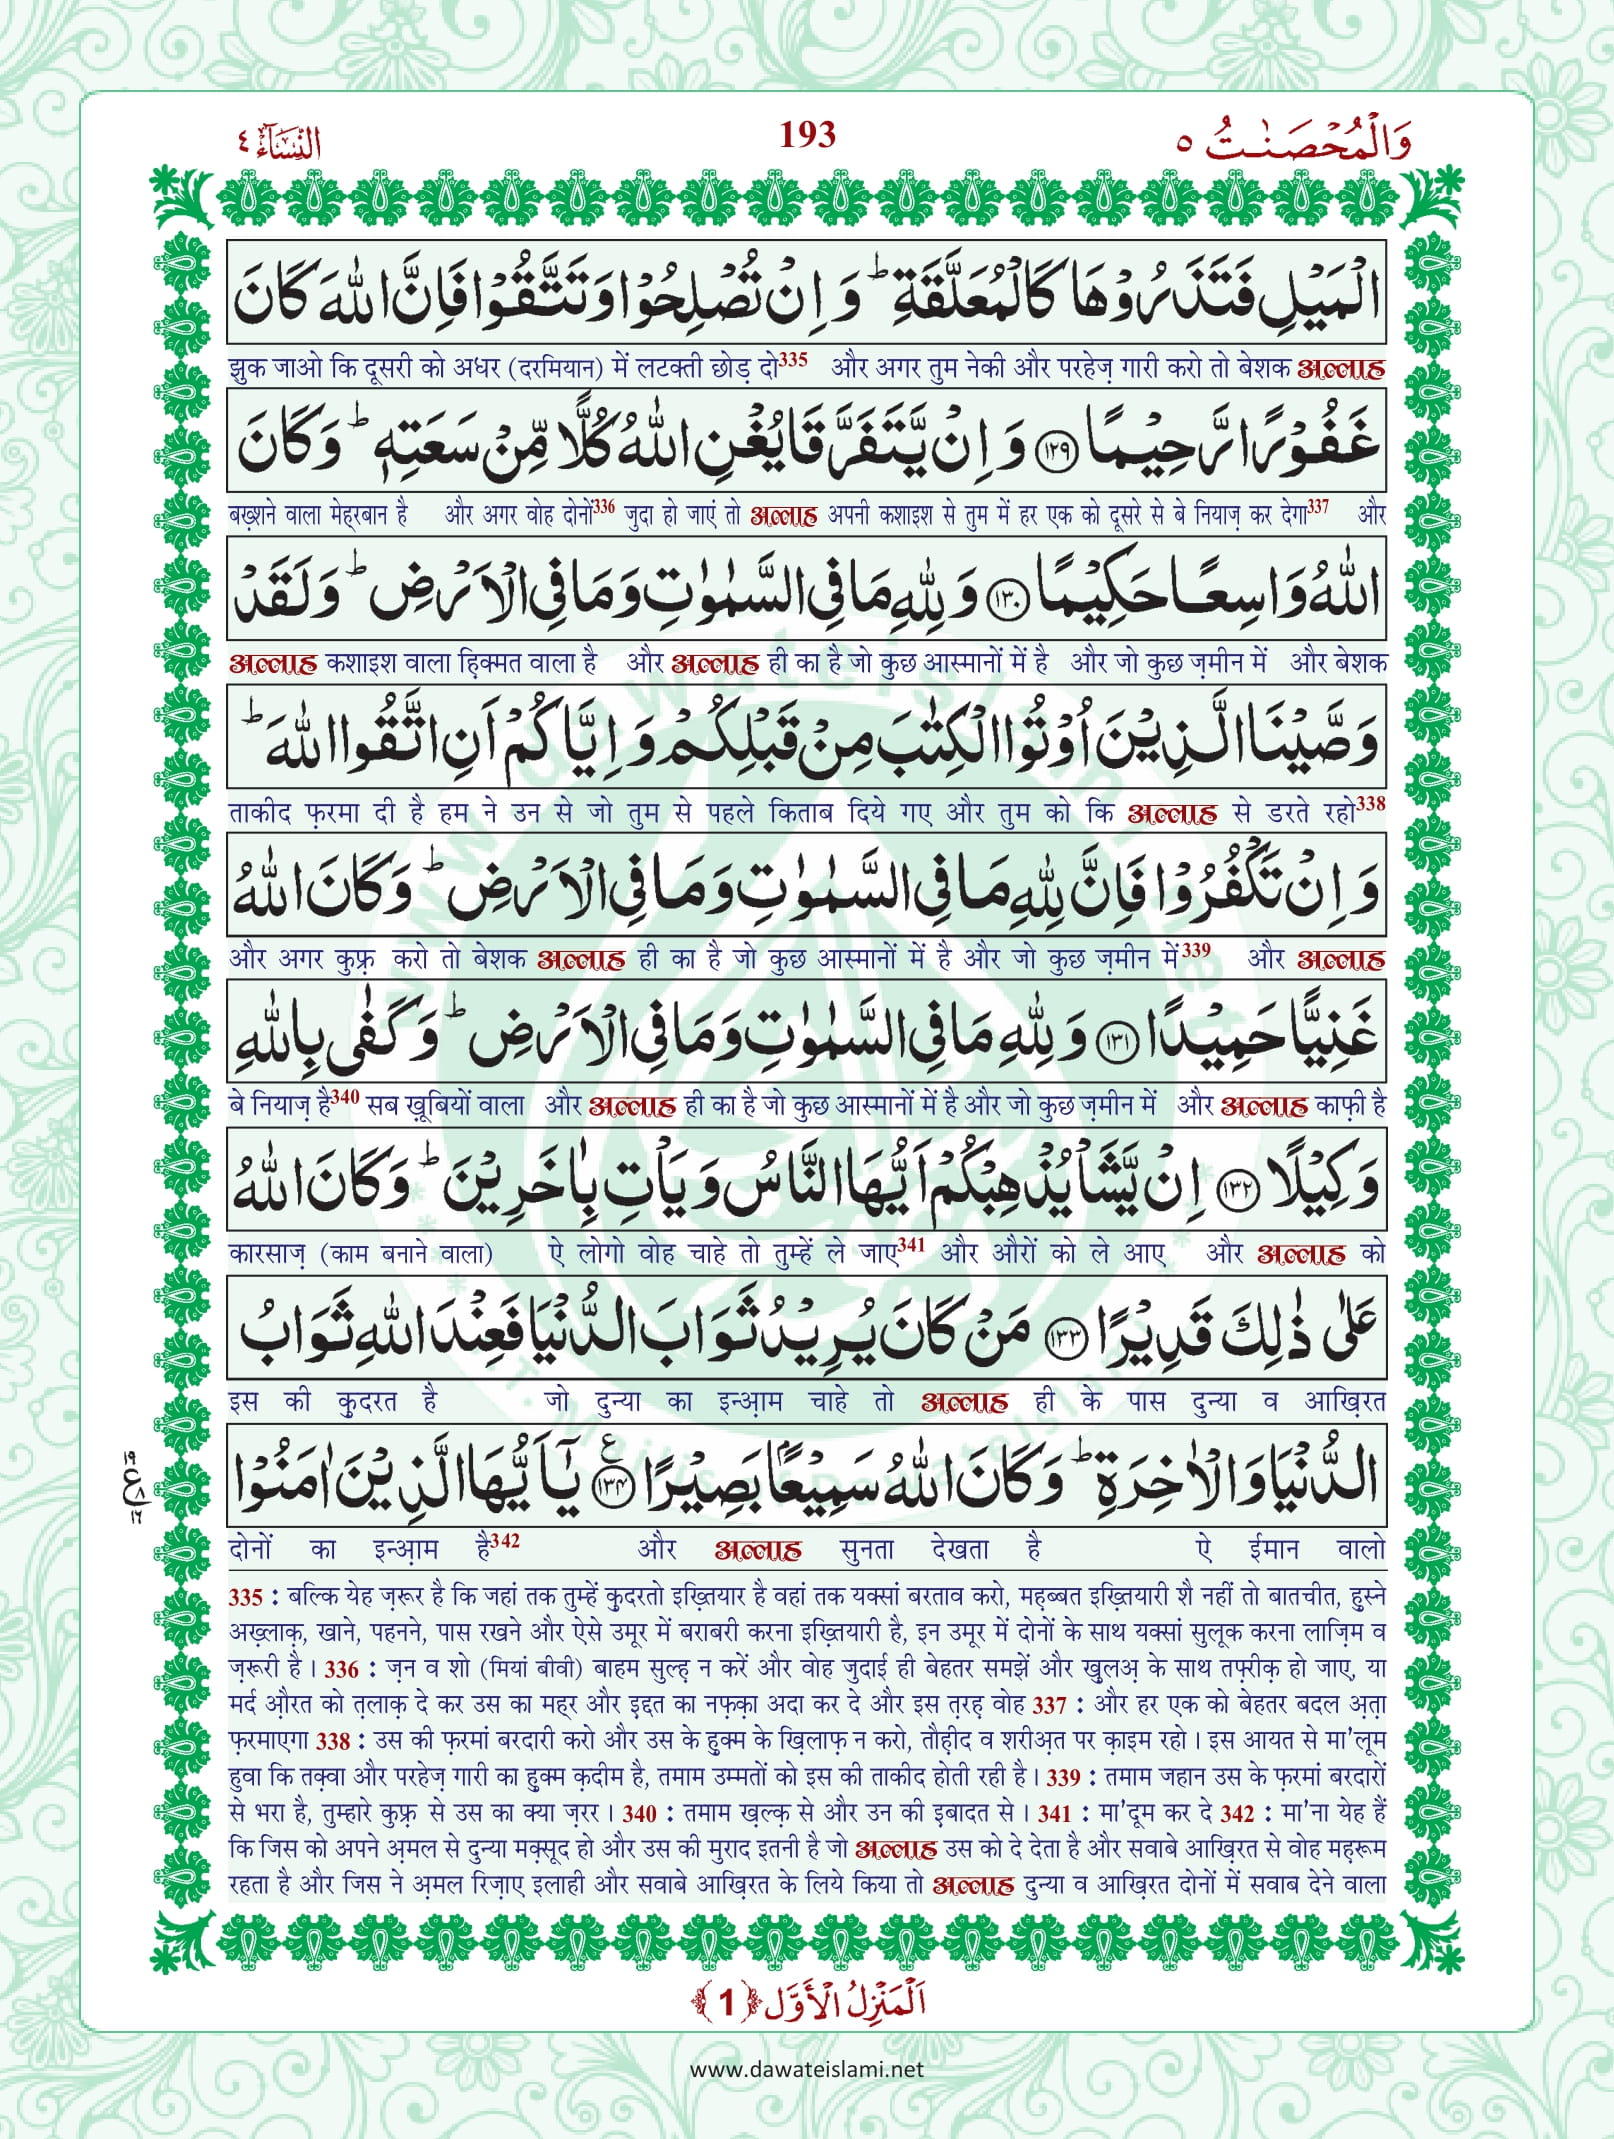 وَالْمُحْصَنٰتُ ٥
193
النِّسَآء ٤
الْمَيْلِ فَتَذَرُوْهَا كَالْمُعَلَّقَةِ ؕ وَ اِنْ تُصْلِحُوْا وَ تَتَّقُوْا فَاِنَّ اللّٰهَ كَانَ
झुक जाओ कि दूसरी को अधर (दरमियान) में लटकती छोड़ दो335 और अगर तुम नेकी और परहेज़ गारी करो तो बेशक अल्लाह
غَفُوْرًا رَّحِيْمًا ﴿۱۲۹﴾ وَ اِنْ يَّتَفَرَّقَا يُغْنِ اللّٰهُ كُلًّا مِّنْ سَعَتِهٖ ؕ وَ كَانَ
बख़्शने वाला मेह़रबान है और अगर वोह दोनों336 जुदा हो जाएं तो अल्लाह अपनी कशाइश से तुम में हर एक को दूसरे से बे नियाज़ कर देगा337 और
اللّٰهُ وَاسِعًا حَكِيْمًا ﴿۱۳۰﴾ وَ لِلّٰهِ مَا فِی السَّمٰوٰتِ وَ مَا فِی الْاَرْضِ ؕ وَ لَقَدْ
अल्लाह कशाइश वाला ह़िक्मत वाला है और अल्लाह ही का है जो कुछ आस्मानों में है और जो कुछ ज़मीन में और बेशक
وَصَّيْنَا الَّذِيْنَ اُوْتُوا الْكِتٰبَ مِنْ قَبْلِكُمْ وَ اِيَّاكُمْ اَنِ اتَّقُوا اللّٰهَ ؕ
ताकीद फ़रमा दी है हम ने उन से जो तुम से पहले किताब दिये गए और तुम को कि अल्लाह से डरते रहो338
وَ اِنْ تَكْفُرُوْا فَاِنَّ لِلّٰهِ مَا فِی السَّمٰوٰتِ وَ مَا فِی الْاَرْضِ ؕ وَ كَانَ اللّٰهُ
और अगर कुफ़्र करो तो बेशक अल्लाह ही का है जो कुछ आस्मानों में है और जो कुछ ज़मीन में339 और अल्लाह
غَنِيًّا حَمِيْدًا ﴿۱۳۱﴾ وَ لِلّٰهِ مَا فِی السَّمٰوٰتِ وَ مَا فِی الْاَرْضِ ؕ وَ كَفٰى بِاللّٰهِ
बे नियाज़ है340 सब ख़ूबियों वाला और अल्लाह ही का है जो कुछ आस्मानों में है और जो कुछ ज़मीन में और अल्लाह काफ़ी है
وَكِيْلًا ﴿۱۳۲﴾ اِنْ يَّشَاْ يُذْهِبْكُمْ اَيُّهَا النَّاسُ وَ يَاْتِ بِاٰخَرِيْنَ ؕ وَ كَانَ اللّٰهُ
कारसाज़ (काम बनाने वाला) ऐ लोगो वोह चाहे तो तुम्हें ले जाए341 और औरों को ले आए और अल्लाह को
عَلٰى ذٰلِكَ قَدِيْرًا ﴿۱۳۳﴾ مَنْ كَانَ يُرِيْدُ ثَوَابَ الدُّنْيَا فَعِنْدَ اللّٰهِ ثَوَابُ
इस की कुदरत है जो दुन्या का इन्आ़म चाहे तो अल्लाह ही के पास दुन्या व आख़िरत
الدُّنْيَا وَ الْاٰخِرَةِ ؕ وَ كَانَ اللّٰهُ سَمِيْعًۢا بَصِيْرًا ﴿۱۳۴﴾ ع يٰۤاَيُّهَا الَّذِيْنَ اٰمَنُوْا
۱۹ ع ۸ ۱٦
दोनों का इन्आ़म है342 और अल्लाह सुनता देखता है ऐ ईमान वालो
335 : बल्कि येह ज़रूर है कि जहां तक तुम्हें कु़दरतो इख़्तियार है वहां तक यक्सां बरताव करो, मह़ब्बत इख़्तियारी शै नहीं तो बातचीत, हु़स्ने
अख़्लाक़, खाने, पहनने, पास रखने और ऐसे उमूर में बराबरी करना इख़्तियारी है, इन उमूर में दोनों के साथ यक्सां सुलूक करना लाज़िम व
ज़रूरी है। 336 : ज़न व शो (मियां बीवी) बाहम सुल्ह़ न करें और वोह जुदाई ही बेहतर समझें और खुलअ़ के साथ तफ़्रीक़ हो जाए, या
मर्द औ़रत को त़लाक़ दे कर उस का मह्र और इद्दत का नफ़्क़ा अदा कर दे और इस त़रह़ वोह 337 : और हर एक को बेहतर बदल अ़त़ा
फ़रमाएगा 338 : उस की फ़रमां बरदारी करो और उस के हुक्म के ख़िलाफ़ न करो, तौह़ीद व शरीअ़त पर क़ाइम रहो। इस आयत से मा'लूम
हुवा कि तक़्वा और परहेज़ गारी का हु़क्म क़दीम है, तमाम उम्मतों को इस की ताकीद होती रही है। 339 : तमाम जहान उस के फ़रमां बरदारों
से भरा है, तुम्हारे कुफ़्र से उस का क्या ज़रर। 340 : तमाम ख़ल्क़ से और उन की इ़बादत से। 341 : मा'दूम कर दे 342 : मा'ना येह हैं
कि जिस को अपने अ़मल से दुन्या मक़्सूद हो और उस की मुराद इतनी है जो अल्लाह उस को दे देता है और सवाबे आख़िरत से वोह मह़रूम
रहता है और जिस ने अ़मल रिज़ाए इलाही और सवाबे आख़िरत के लिये किया तो अल्लाह दुन्या व आख़िरत दोनों में सवाब देने वाला
اَلْمَنْزِلُ الْاَوَّل ﴿1﴾
www.dawateislami.net